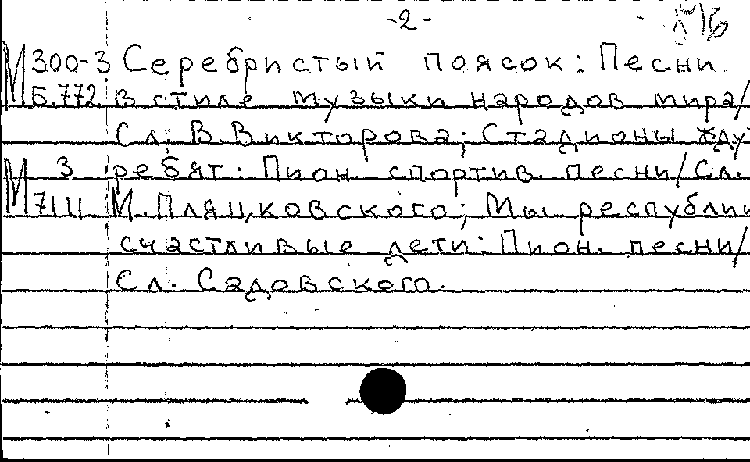 -2-
М 300-3 Серебристый поясок: Песни
Б.772 в стиле музыки народов мира/
Сл. В.Викторова; Стадионы жду
М 3 ребят: Пион. спортив. песни/Сл.
7111 М.Пляцковского; Мы республи
счастливые дети: Пион. песни/
Сл. Садовского.